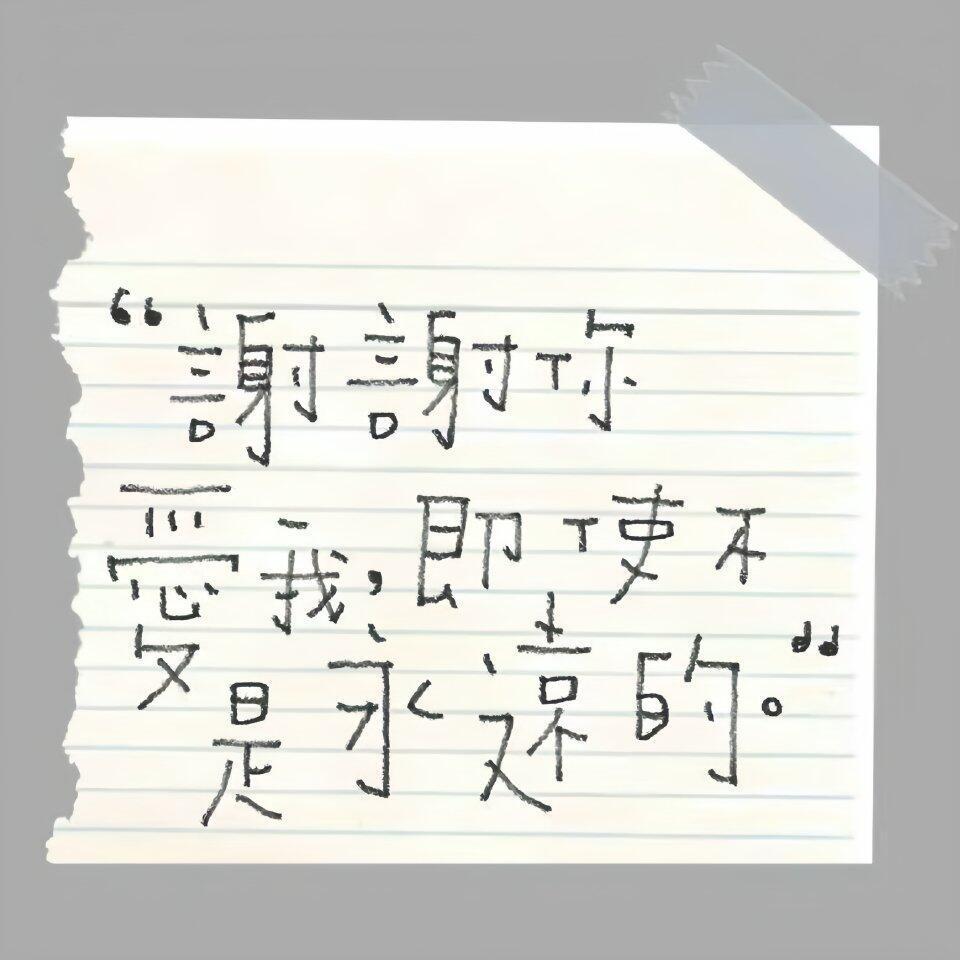 “謝謝你
愛我,即使不
是永遠的。”